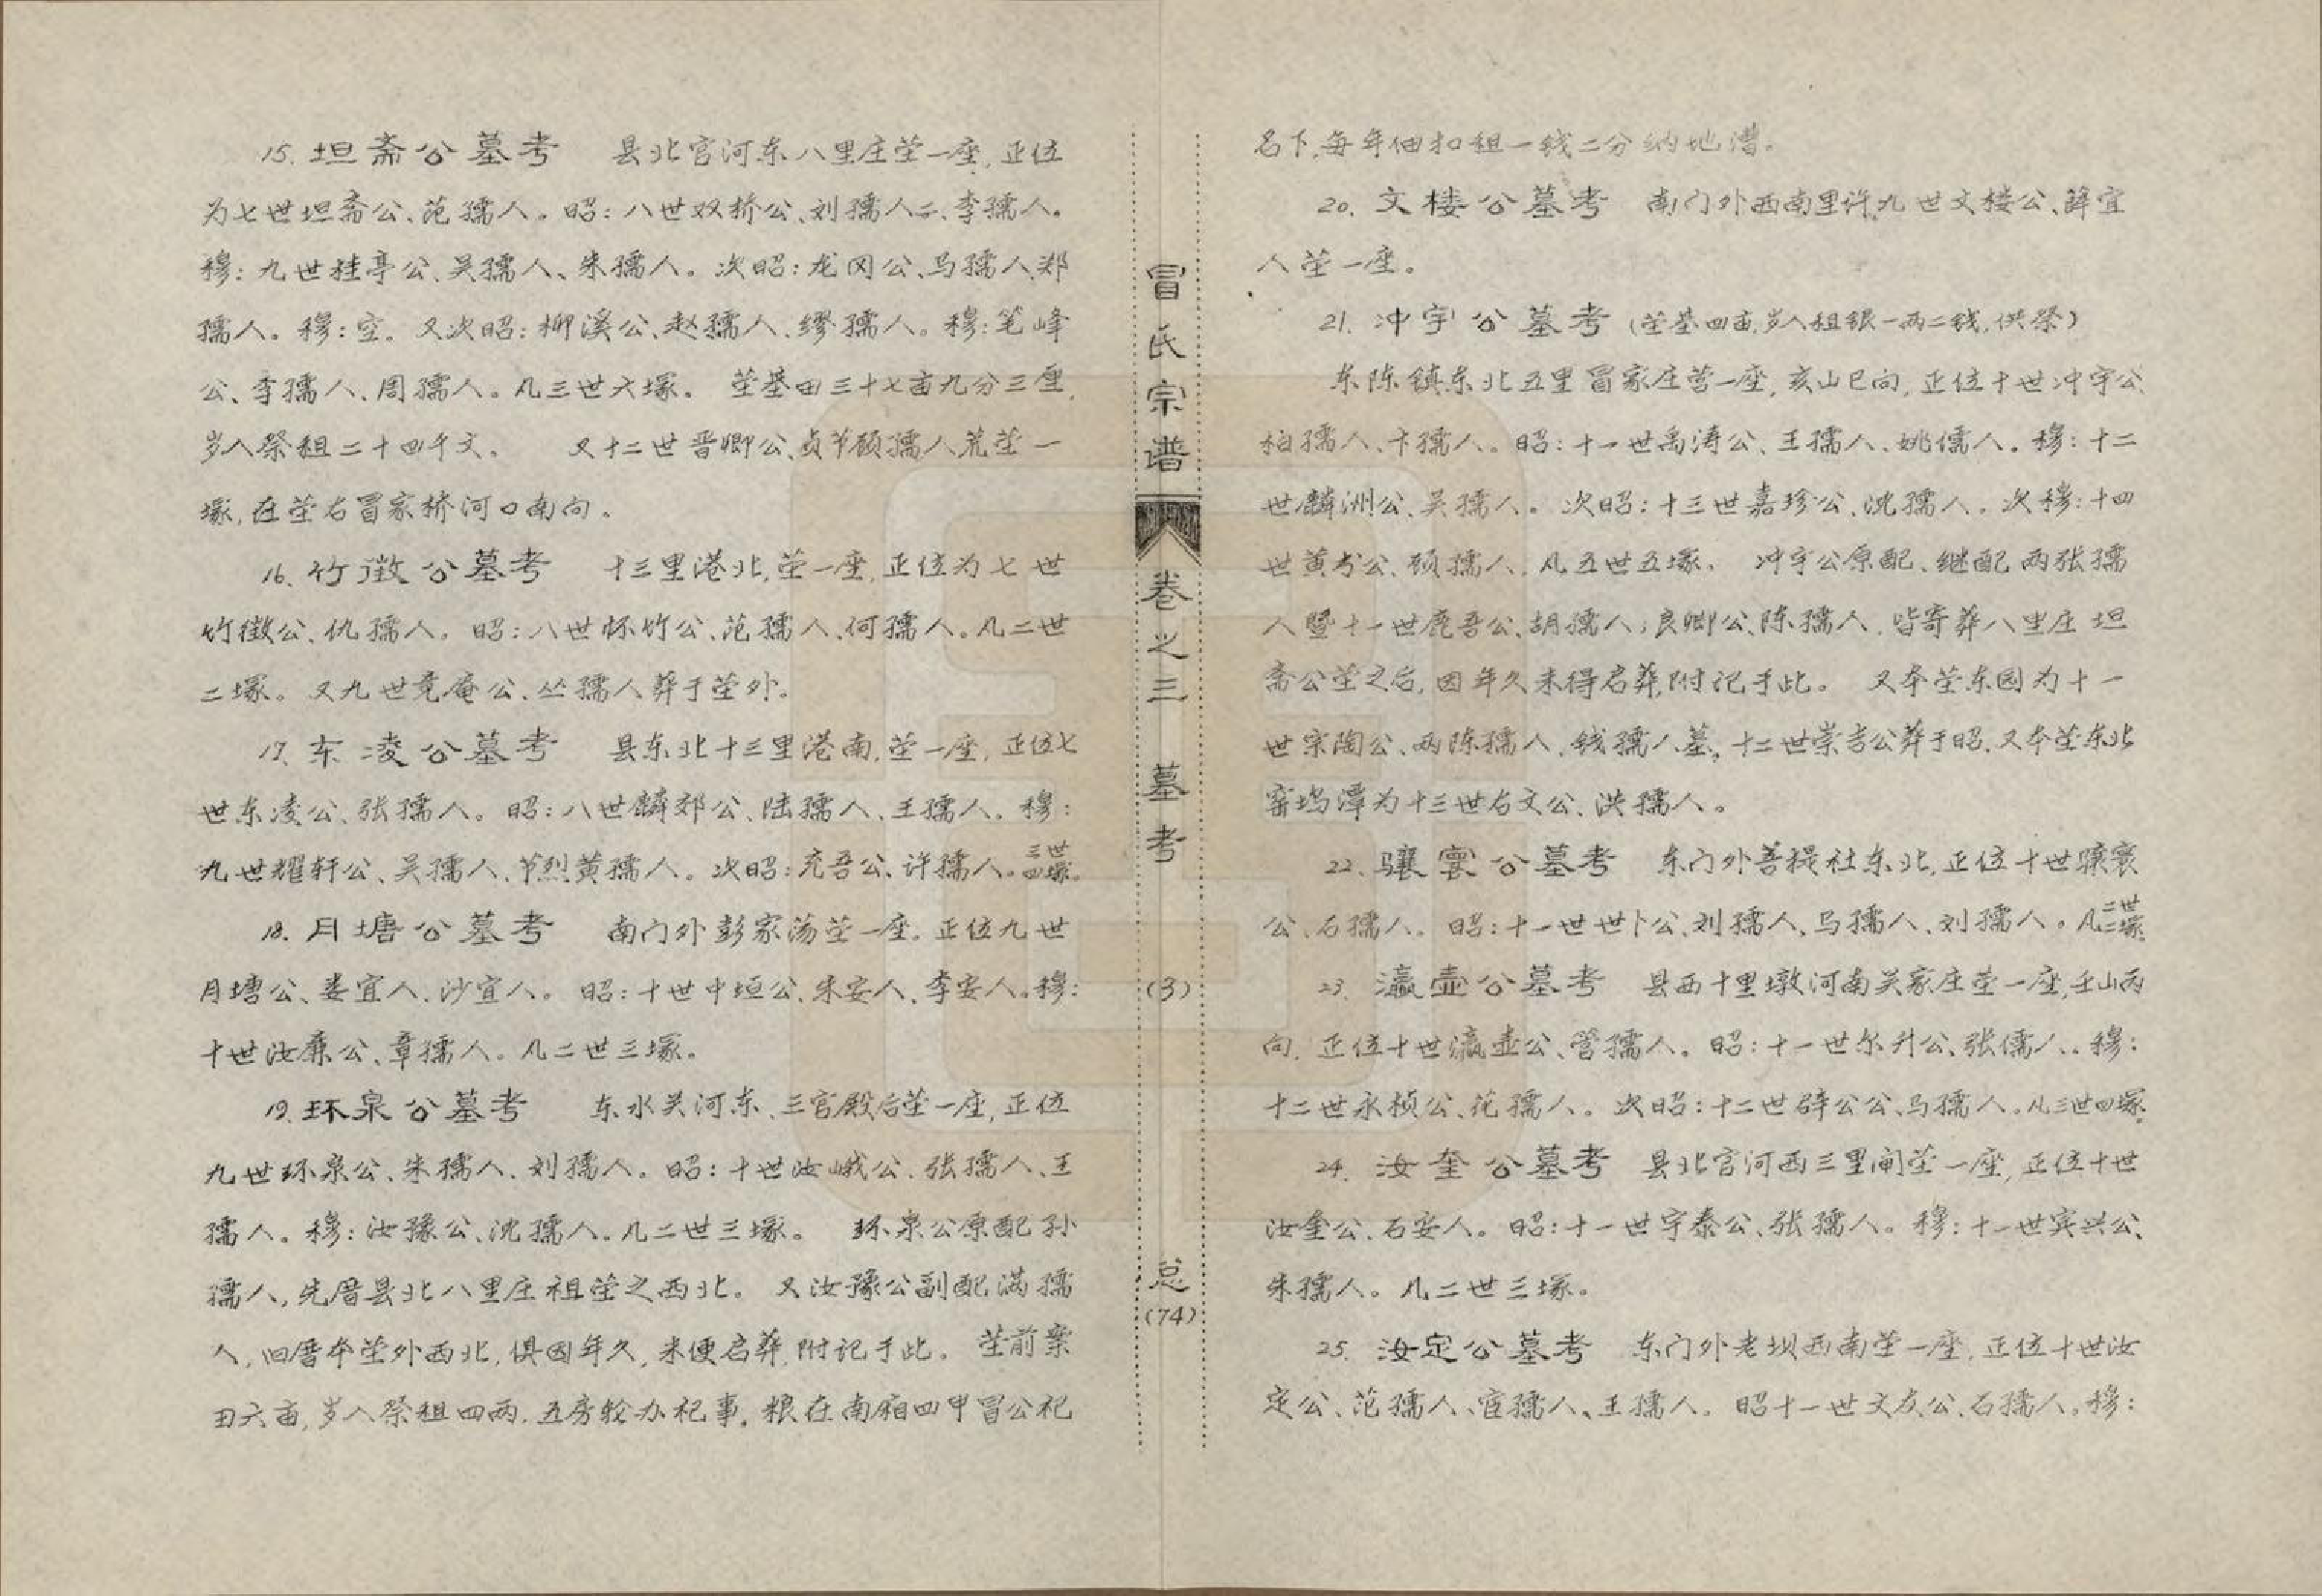 15. 坦斋公墓考 县北官河东八里庄茔一座,正位
为七世坦斋公、范孺人。昭:八世双桥公、刘孺人二、李孺人。
穆:九世桂亭公、吴孺人、朱孺人。次昭:龙冈公、马孺人、郑
孺人。穆:空。又次昭:柳溪公、赵孺人、缪孺人。穆:笔峰
公、李孺人、周孺人。凡三世六塚。 茔基田三十七亩九分三厘,
岁入祭租二十四千文。 又十二世晋卿公、贞节顾孺人荒茔一
塚,在茔右冒家桥河口南向。
16. 竹徵公墓考 十三里港北,茔一座,正位为七世
竹徵公、仇孺人。昭:八世怀竹公、范孺人、何孺人。凡二世
二塚。又九世竟庵公、丛孺人葬于茔外。
17. 东凌公墓考 县东北十三里港南,茔一座,正位七
世东凌公、张孺人。昭:八世麟郊公、陆孺人、王孺人。穆:
九世耀轩公、吴孺人、节烈黄孺人。次昭:充吾公、许孺人。三世四塚。
18. 月塘公墓考 南门外彭家荡茔一座。正位九世
月塘公、娄宜人、沙宜人。昭:十世中垣公、朱安人、李安人。穆:
十世汝廉公、章孺人。凡二世三塚。
19. 环泉公墓考 东水关河东、三官殿后茔一座,正位
九世环泉公、朱孺人、刘孺人。昭:十世汝峨公、张孺人、王
孺人。穆:汝豫公、沈孺人。凡二世三塚。 环泉公原配孙
孺人,先厝县北八里庄祖茔之西北。又汝豫公副配满孺
人,旧厝本茔外西北,俱因年久,未便启葬,附记于此。茔前案
田六亩,岁入祭租四两,五房轮办祀事,粮在南厢四甲冒公祀
冒氏宗谱 卷之三 墓考 (3) 总(74)
名下,每年佃扣租一钱二分纳地漕。
20. 文楼公墓考 南门外西南里许,九世文楼公、薛宜
人茔一座。
21. 冲宇公墓考(茔基四亩,岁入租银一两二钱,供祭)
东陈镇东北五里冒家庄茔一座,亥山巳向,正位十世冲宇公、
柏孺人、卞孺人。昭:十一世禹涛公、王孺人、姚儒人。穆:十二
世麟洲公、吴孺人。次昭:十三世嘉珍公、沈孺人。次穆:十四
世黄公、顾孺人,凡五世五塚。 冲宇公原配、继配两张孺
人暨十一世鹿吾公、胡孺人;良卿公、陈孺人,皆寄葬八里庄坦
斋公茔之后,因年久未得启葬,附记于此。 又本茔东园为十一
世宗陶公、两陈孺人、钱孺人墓,十二世崇吉公葬于昭,又本茔东北
窑坞潭为十三世右文公、洪孺人。
22. 骧寰公墓考 东门外菩提社东北,正位十世骧寰
公、石孺人。昭:十一世世卜公、刘孺人、马孺人、刘孺人。凡二世二塚。
23. 瀛壶公墓考 县西十里墩河南关家庄茔一座,壬山丙
向,正位十世瀛壶公、管孺人。昭:十一世尔升公、张儒人。穆:
十二世永桢公、范孺人。次昭:十二世辟公公、马孺人。凡三世四塚。
24. 汝奎公墓考 县北官河西三里闸茔一座,正位十世
汝奎公、石安人。昭:十一世宇泰公、张孺人。穆:十一世宾兴公、
朱孺人。凡二世三塚。
25. 汝定公墓考 东门外老坝西南茔一座,正位十世汝
定公、范孺人、宦孺人、王孺人。昭十一世文友公、石孺人。穆: